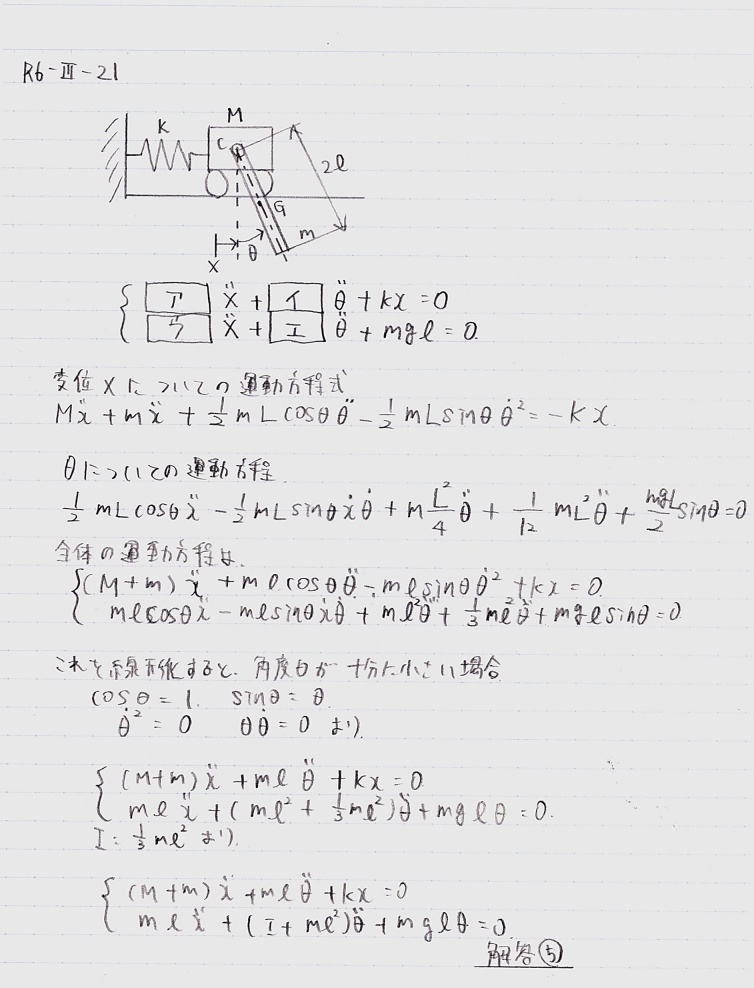 R6-Ⅲ-21
M
K
C
2l
G
m
θ
x
{ ア ẍ + イ θ̈ + kx = 0
ウ ẍ + エ θ̈ + mgl = 0.
変位xについての運動方程式
Mẍ + mẍ + 1/2 m L cosθ θ̈ - 1/2 m L sinθ θ̇² = -kx.
θについての運動方程.
1/2 mL cosθ ẍ - 1/2 mL sinθ ẋ θ̇ + m L²/4 θ̈ + 1/12 mL² θ̈ + mgL/2 sinθ = 0
全体の運動方程は.
{ (M+m) ẍ + ml cosθ θ̈ - ml sinθ θ̇² + kx = 0.
ml cosθ ẍ - ml sinθ ẋ θ̇ + ml² θ̈ + 1/3 ml² θ̈ + mgl sinθ = 0.
これを線形化すると. 角度θが十分に小さい場合
cosθ = 1. sinθ = θ
θ̇² = 0 θθ̇ = 0 より).
{ (M+m) ẍ + ml θ̈ + kx = 0.
ml ẍ + (ml² + 1/3 ml²) θ̈ + mglθ = 0.
I: 1/3 ml² より).
{ (M+m) ẍ + ml θ̈ + kx = 0
ml ẍ + (I + ml²) θ̈ + mglθ = 0
解答⑤